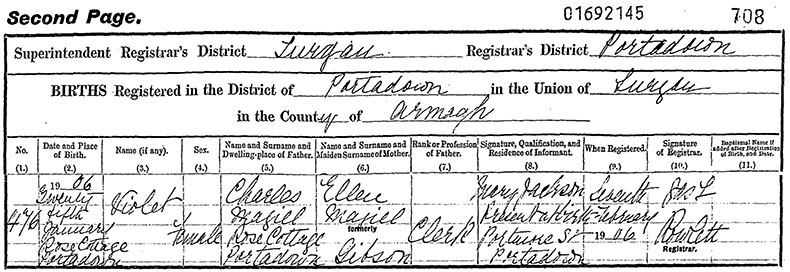 Second Page.
01692145
708
Superintendent Registrar's District Lurgan Registrar's District Portadown
BIRTHS Registered in the District of Portadown in the Union of Lurgan
in the County of Armagh
No. Date and Place of Birth. Name (if any). Sex. Name and Surname and Dwelling-place of Father. Name and Surname and Maiden Surname of Mother. Rank or Profession of Father. Signature, Qualification, and Residence of Informant. When Registered. Signature of Registrar. Baptismal Name if added after Registration of Birth, and Date.
(1.) (2.) (3.) (4.) (5.) (6.) (7.) (8.) (9.) (10.) (11.)
1906
Twenty Violet Charles Ellen Mary Jackson Seventh
476 fifth Magiel Magiel Present at birth February
January Female Rose Cottage formerly Clerk Portmore St 1906
Rose Cottage Portadown Gibson Portadown Registrar.
Portadown